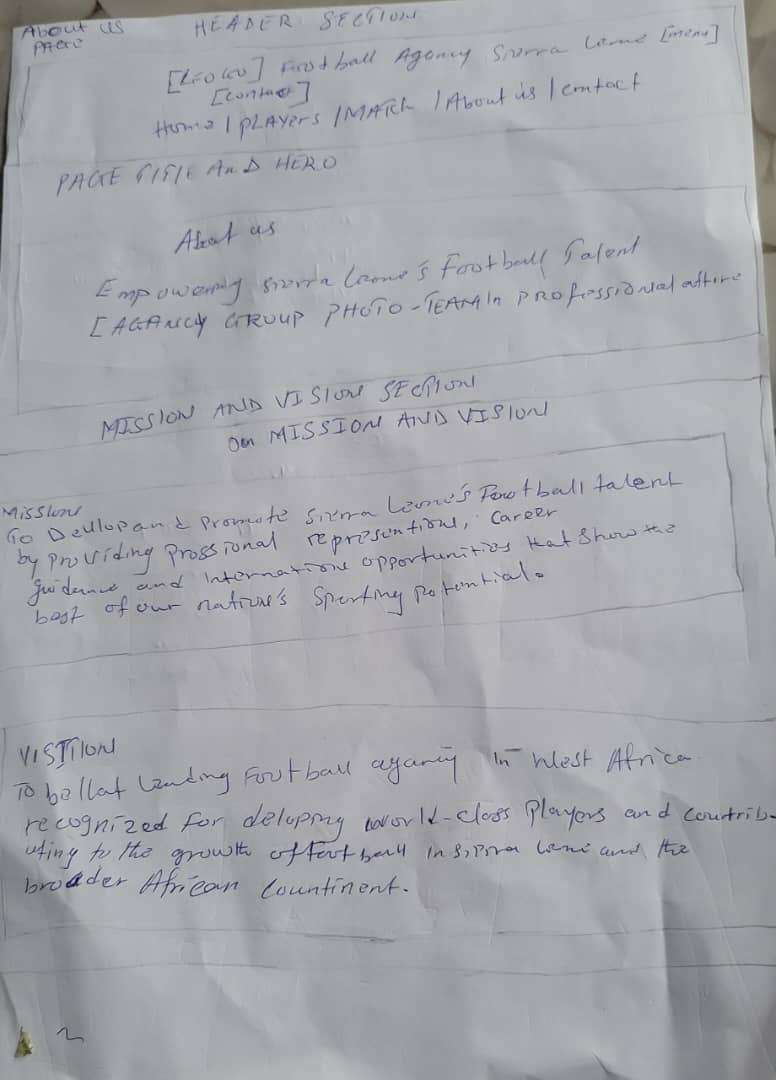 About us
PAGE
HEADER SECTION
[LOGO] Football Agency Sierra Leone [menu]
[contact]
Home | PLAYers | MATCH | About us | contact
PAGE TITLE AnD HERO
About us
Empowering Sierra Leone's Football Talent
[AGANCY GROUP PHOTO - TEAM In PROfessional attire
MISSION AND VISION SECTION
Our MISSION AND VISION
Mission
To Devlop and Promote Sierra Leone's Football talent
by providing Prossional representions, career
guidance and Internatione opportunities that Show the
best of our nation's Sporting Potential.
VISTION
To be leading Football agancy In West Africa
recognized For deloping world-class Players and contrib-
uting to the growth of football in Sierra Leone and the
broader African Countinent.
2